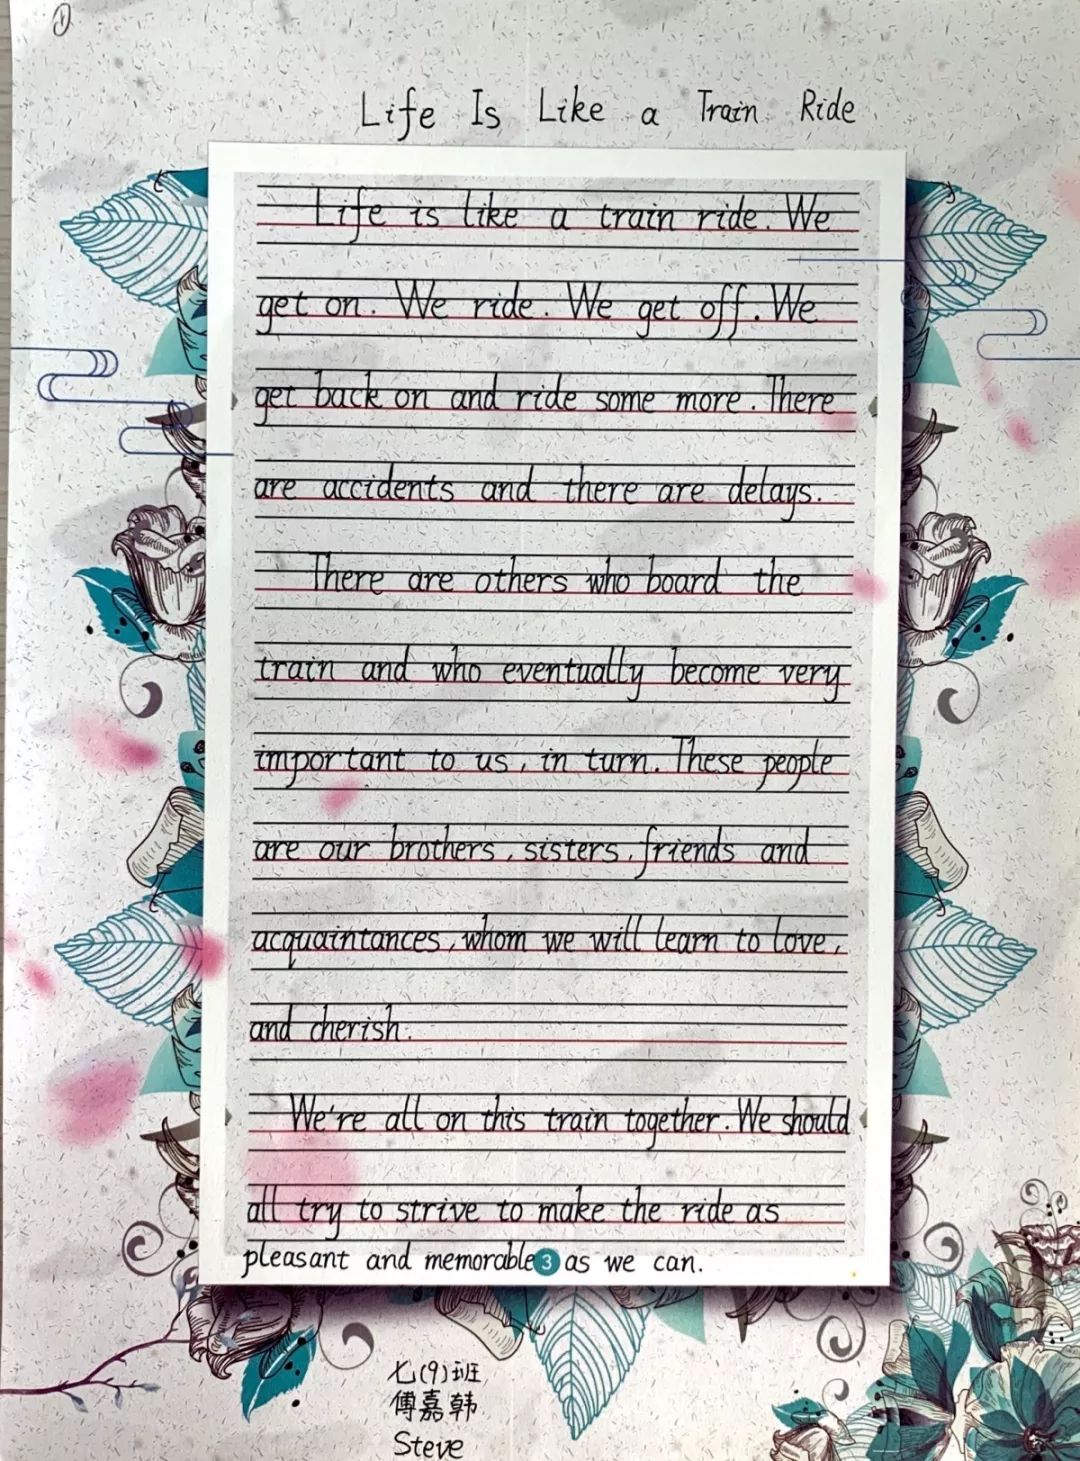 ①
Life Is Like a Train Ride
Life is like a train ride. We
get on. We ride. We get off. We
get back on and ride some more. There
are accidents and there are delays.
There are others who board the
train and who eventually become very
important to us, in turn. These people
are our brothers, sisters, friends and
acquaintances, whom we will learn to love,
and cherish.
We're all on this train together. We should
all try to strive to make the ride as
pleasant and memorable 3 as we can.
七(9)班
傅嘉韩
Steve